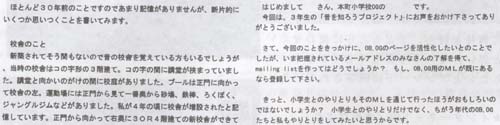 ほとんど30年前のことですのであまり記憶がありませんが、断片的に
いくつか思いつくことを書いてみます。
校舎のこと
新築されてそう間もないので昔の校舎を覚えている方もいるでしょうが
、当時の校舎はコの字形の3階建て。コの字の間に講堂が挟まっていまし
た。講堂と向かいのがけの間に校庭がありました。プールは正門に向かっ
て校舎の左。運動場には正門から見て一番奥から砂場、鉄棒、ろくぼく、
ジャングルジムなどがありました。私が4年の頃に校舎が増設されたと記
憶しています。正門から向かって右奥に3OR4階建ての新校舎ができて
はじめまして さん、本町小学校OOの です。
今回は、3年生の「昔を知ろうプロジェクト」にお声をおかけ下さってあり
がとうございました。
さて、今回のことをきっかけに、OB,OGのページを活性化したいとのことで
したが、いま把握されているメールアドレスのみなさんの了解を得て、
mailing listを作ってはどうでしょうか？ もし、OB,OG用のMLが既にある
なら登録して下さい。
きっと、小学生とのやりとりもそのMLを通じて行ったほうがおもしろいの
ではないでしょうか？ 小学生とのやりとりだけでなく、ちがう年代のOB,OG
たちと私もやりとりをしてみたいと思うからです。